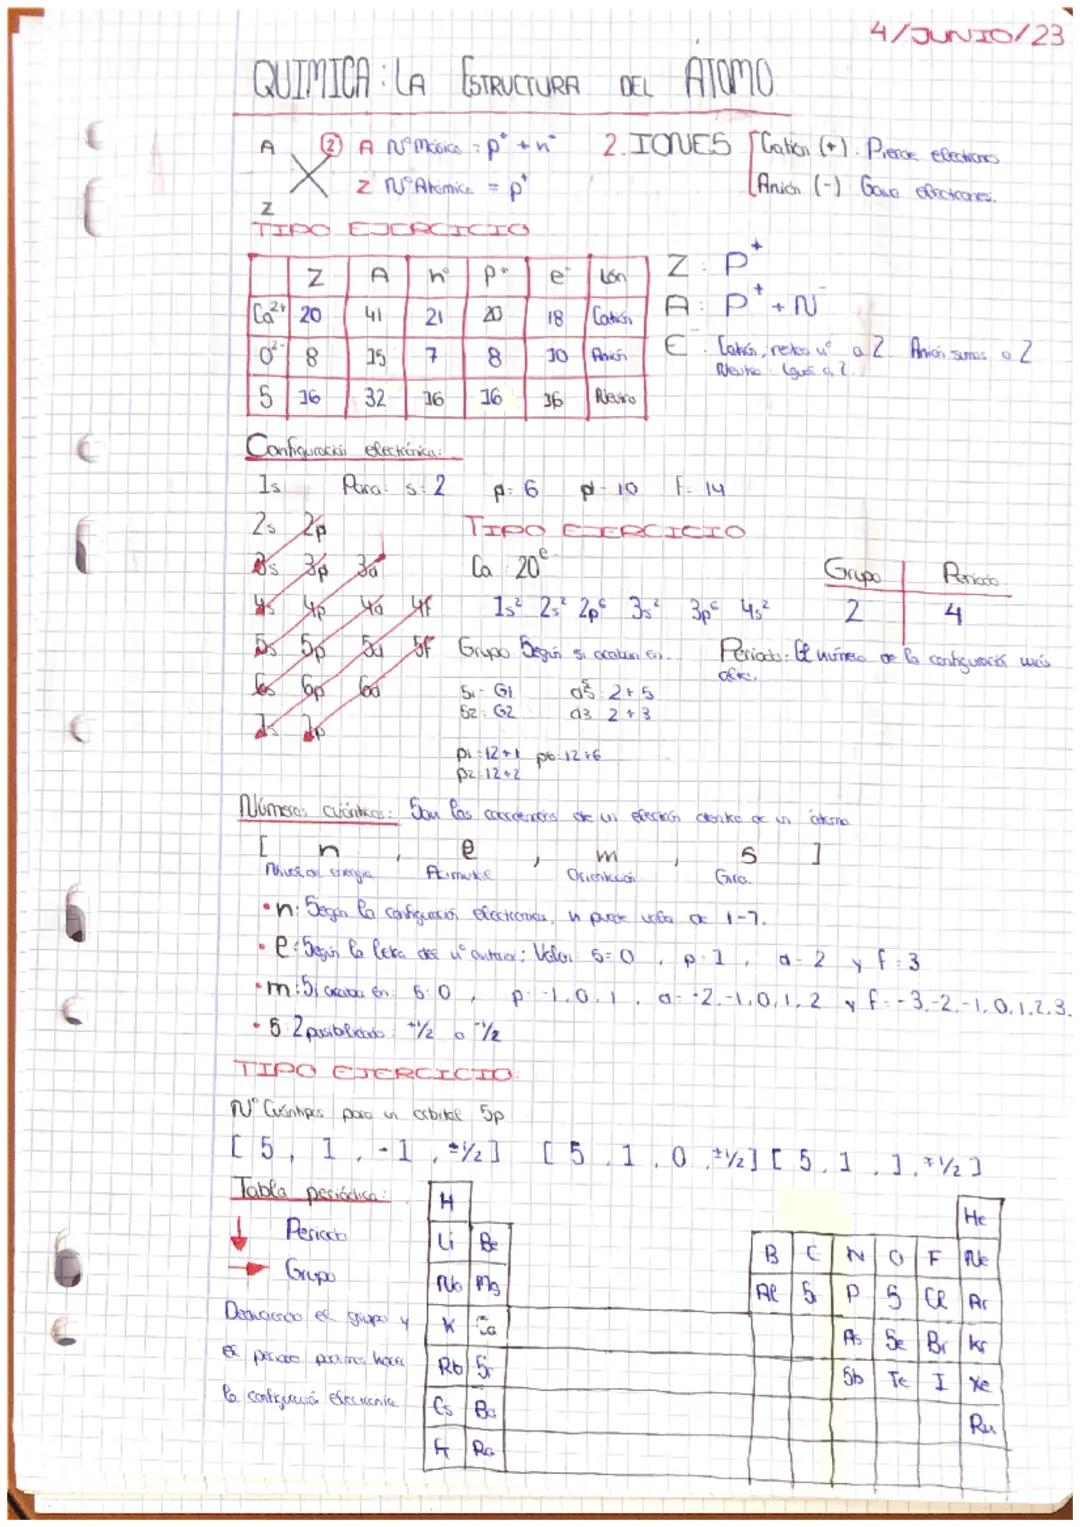 4/JUNIO/23
QUIMICA: LA ESTRUCTURA DEL ÁTOMO
A
Z
② A Nº Másico = p⁺ + n°
Z Nº Atómico = p⁺
2. IONES
Catión (+): Pierde electrones
Anión (-): Gana electrones.
TIPO EJERCICIO
Z A n° p⁺ e⁻ Ión
Ca²⁺ 20 41 21 20 18 Catión
O²⁻ 8 15 7 8 10 Anión
S 16 32 16 16 16 Neutro
Z: P⁺
A: P⁺ + N⁻
E⁻: Catión, restas nº a Z Anión sumas a Z
Neutro: Igual a Z.
Configuración electrónica:
1s Para: s: 2 p= 6 d- 10 f= 14
2s 2p
3s 3p 3d
4s 4p 4d 4f
5s 5p 5d 5f
6s 6p 6d
7s 7p
TIPO EJERCICIO
Ca: 20e⁻
1s² 2s² 2p⁶ 3s² 3p⁶ 4s²
Grupo Periodo
2 4
Grupo: Según si acaban en...
S1- G1 d5: 2+5
S2: G2 d3 2+3
p1: 12+1 p6: 12+6
p2: 12+2
Periodo: El número de la configuración más
Números cuánticos: Son las coordenadas de un electrón dentro de un átomo
[ n , l , m , s ]
Nivel de energía Azimutal Orientación Giro.
• n: Según la configuración electrónica, n puede valer de 1-7.
• l: Según la letra del nº anterior: Valen s=0, p=1, d=2 y f=3
• m: Si acaba en: s:0, p: -1,0,1. d= -2,-1,0,1,2 y f= -3,-2,-1,0,1,2,3.
• s: 2 posibilidades: +½ o -½
TIPO EJERCICIO:
Nº Cuánticos para un orbital 5p
[5, 1, -1, ±½] [5, 1, 0, ±½] [5, 1, 1, ±½]
Tabla periódica:
Periodo
Grupo
Deduciendo el grupo y
el periodo podemos hacer
la configuración electrónica
H He
Li Be B C N O F Ne
Na Mg Al Si P S Cl Ar
K Ca As Se Br Kr
Rb Sr Sb Te I Xe
Cs Ba Rn
Fr Ra